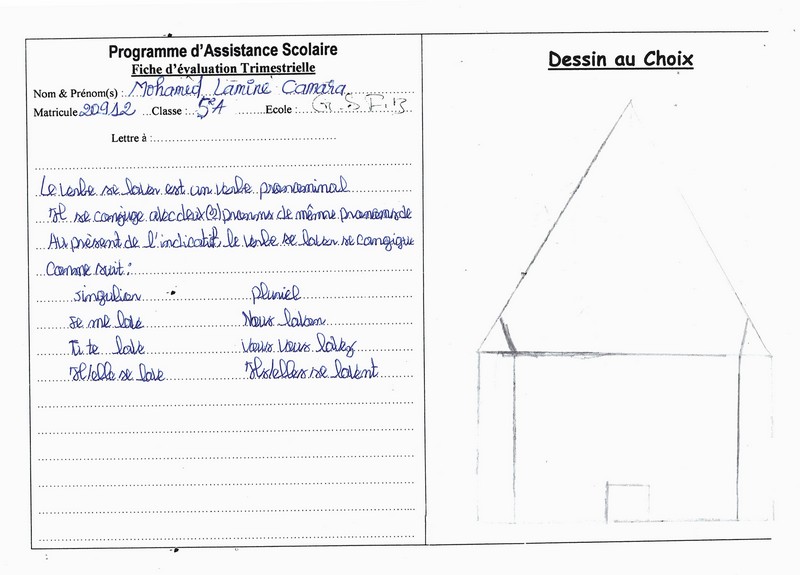 Programme d'Assistance Scolaire
Fiche d'évaluation Trimestrielle
Nom & Prénom(s) : Mohamed Lamine Camara
Matricule 20912 Classe : 5e A Ecole : G.S.F.B
Lettre à :
Le verbe se laver est un verbe pronominal
Il se conjugue avec deux (2) pronoms de même pronoms de
Au présent de l'indicatif, le verbe se laver se congigue
comme suit :
singulier pluriel
Je me lave Nous lavon
Ti te lave Vous vous lavez
Il/elle se lave Ils/elles se lavent
Dessin au Choix